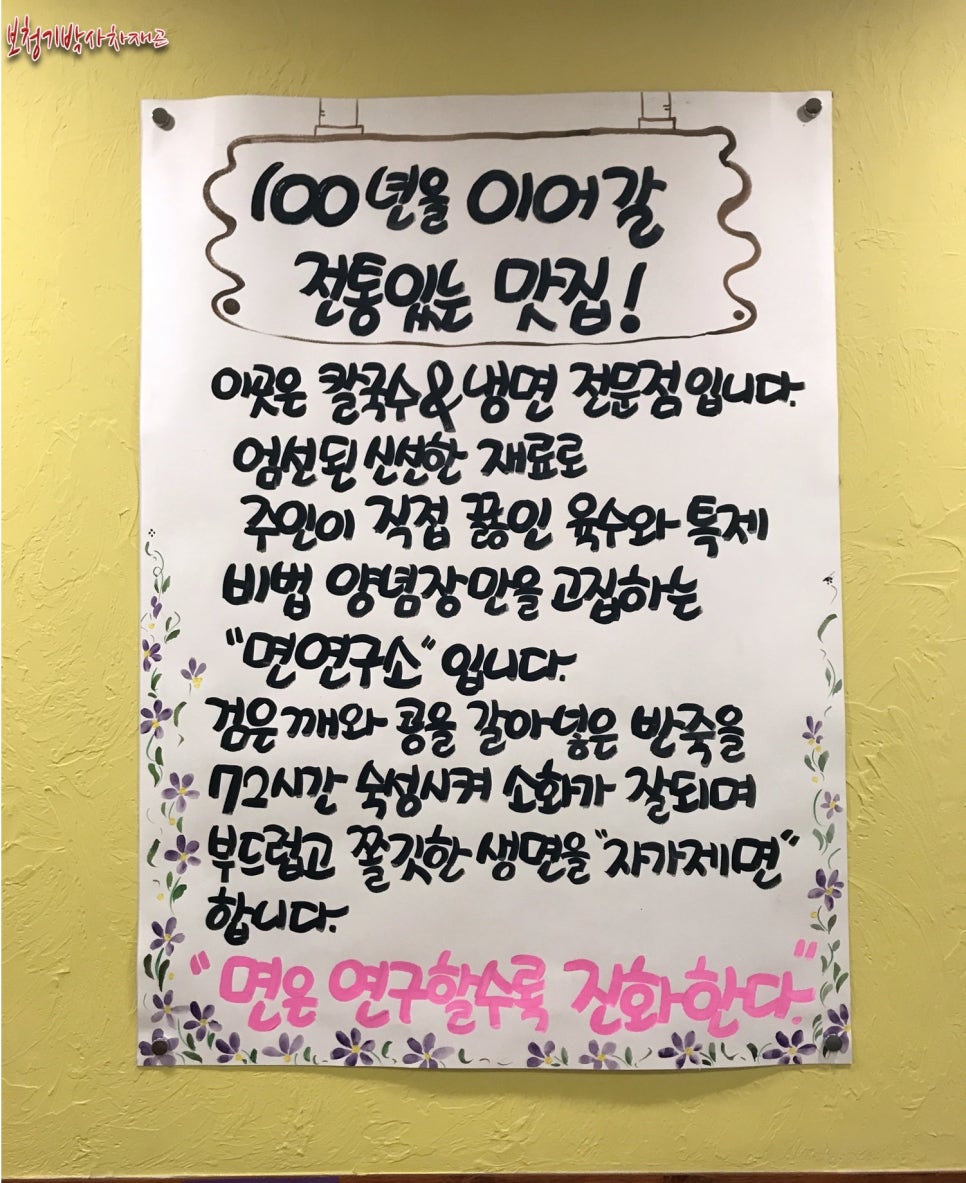 보청기박사차재근
100년을 이어갈
전통있는 맛집!
이곳은 칼국수&냉면 전문점입니다.
엄선된 신선한 재료로
주인이 직접 끓인 육수와 특제
비법 양념장만을 고집하는
"면연구소"입니다.
검은깨와 콩을 갈아넣은 반죽을
72시간 숙성시켜 소화가 잘되며
부드럽고 쫄깃한 생면을 "자가제면"
합니다.
"면은 연구할수록 진화한다."